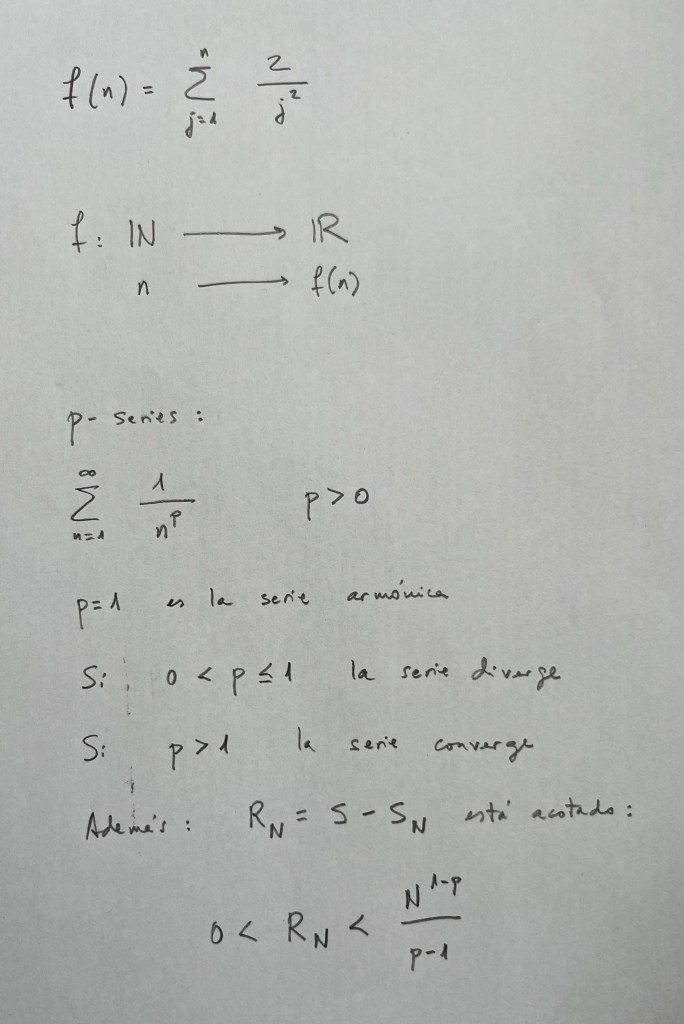 f(n) = ∑_{j=1}^{n} 2/j²
f: ℕ ⟶ ℝ
n ⟶ f(n)
p-series:
∑_{n=1}^{∞} 1/n^p p > 0
p=1 es la serie armónica
Si 0 < p ≤ 1 la serie diverge
Si p > 1 la serie converge
Además: R_N = S - S_N está acotado:
0 < R_N < N^{1-p}/(p-1)